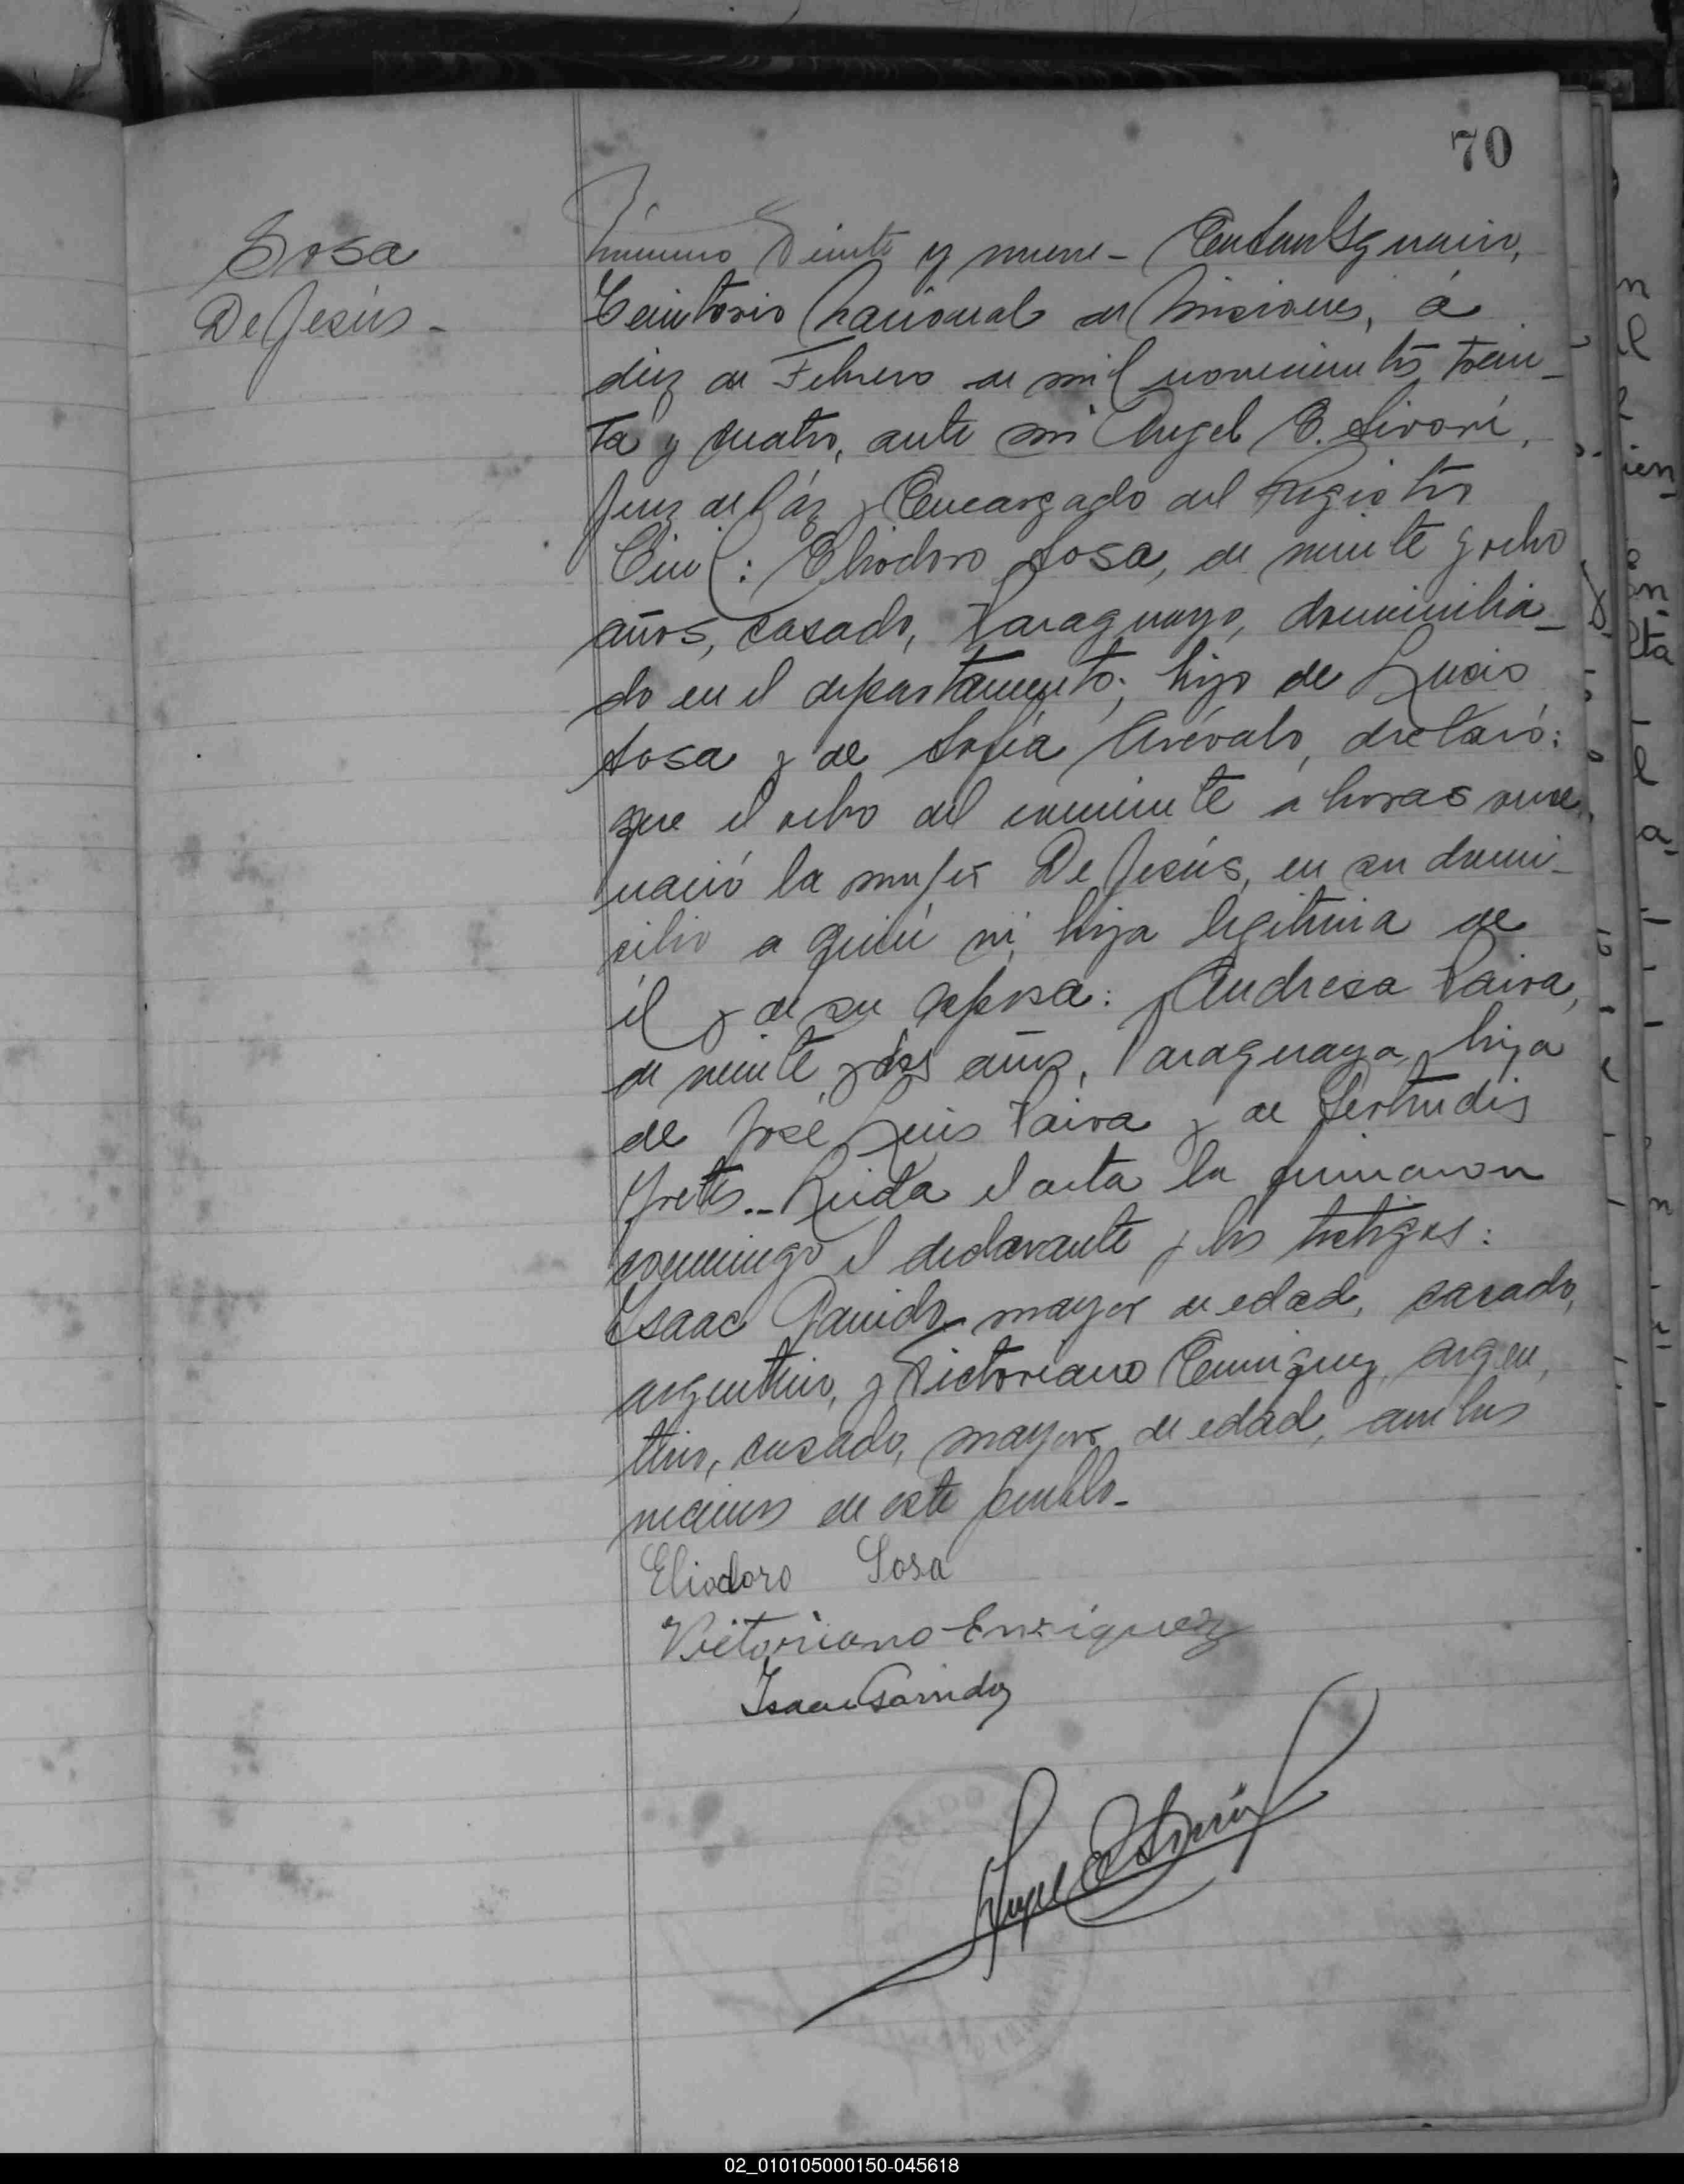 70
Sosa
De Jesús -
Número Veinte y nueve - En San Ignacio,
Territorio Nacional de Misiones, á
diez de Febrero de mil novecientos trein-
ta y cuatro, ante mi Angel E. Sivori,
Juez de Páz y Encargado del Registro
Civil: Eliodoro Sosa, de veinte y ocho
años, casado, Paraguayo, domicilia-
do en el departamento; hijo de Lucio
Sosa y de Sofía Arévalo, declaró:
que el ocho del corriente a horas once
nació la mujer De Jesús, en su domi-
cilio a quien vi, hija legitima de
él y de su esposa: Andresa Paiva,
de veinte y dos años, Paraguaya, hija
de José Luis Paiva y de Gertrudis
. - Leida el acta la firmaron
conmigo el declarante y los testigos:
Isaac Garrido, mayor de edad, casado,
argentino, y Victoriano Enriquez, argen,
tino, casado, mayor de edad, ambos
vecinos de este pueblo -
Eliodoro Sosa
Victoriano Enriquez
Isaac Garrido
Angel E Sivori
02_010105000150-045618